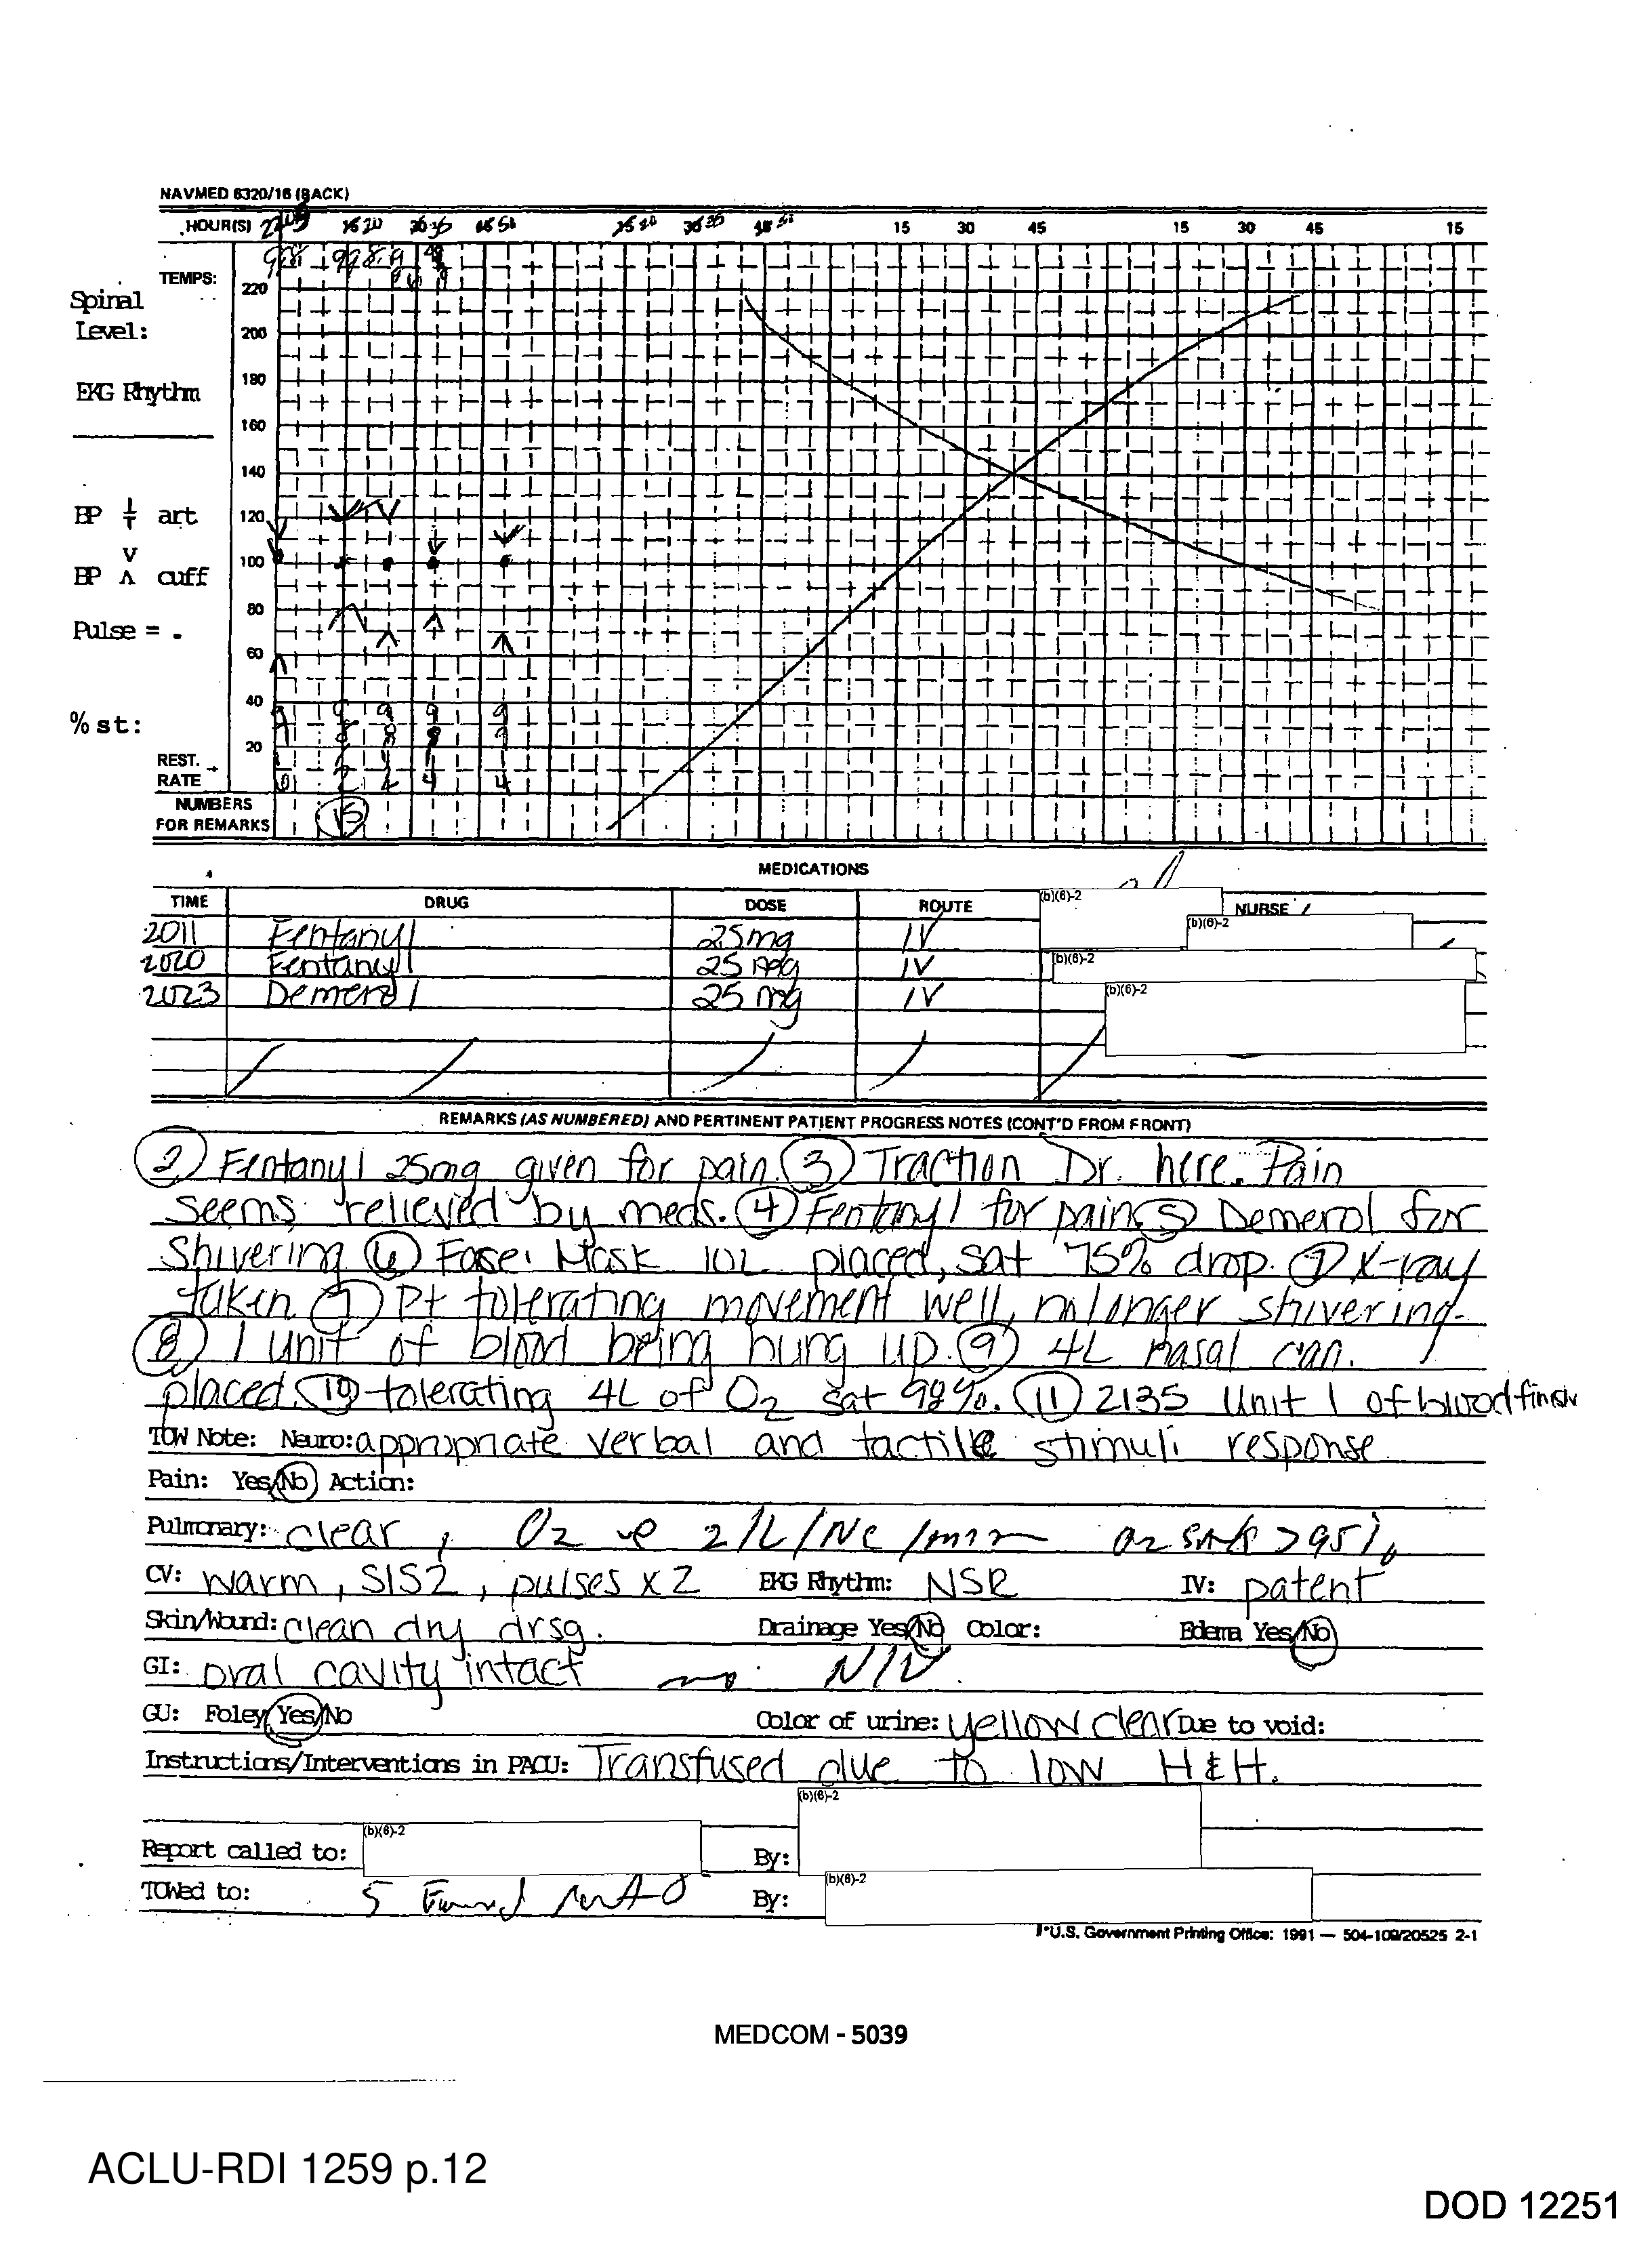 NAVMED 6320/16 (BACK)
HOUR(S) 15 20 30 35 45 50 15 20 30 35 45 50 15 30 45 15 30 45 15
TEMPS:
Spinal
Level:
EKG Rhythm
220
200
180
160
140
120
100
80
60
40
20
BP art
BP V Λ cuff
Pulse = .
% st:
REST.
RATE
NUMBERS
FOR REMARKS
15
MEDICATIONS
TIME DRUG DOSE ROUTE (b)(6)-2 NURSE
2011 Fentanyl 25mg IV (b)(6)-2
2020 Fentanyl 25 IV (b)(6)-2
2023 Demerol 25 mg IV (b)(6)-2
REMARKS (AS NUMBERED) AND PERTINENT PATIENT PROGRESS NOTES (CONT'D FROM FRONT)
2 Fentanyl 25mg given for pain. 3 Traction Dr. here. Pain
seems relieved by meds. 4 Fentanyl for pain 5 Demerol for
Shivering 6 Face Mask 10L placed, sat 75% drop. 7 X-ray
taken 7 Pt tolerating movement well, no longer shivering.
8 1 unit of blood being hung up. 9 4L nasal can.
placed. 10 tolerating 4L of O2 sat 98%. 11 2135 Unit 1 of blood finish
TOW Note: Neuro: appropriate verbal and tactile stimuli response
Pain: Yes/No Action:
Pulmonary: clear, O2 2/L/NC/min O2 sat >95%
CV: warm, S1S2, pulses x 2 EKG Rhythm: NSR IV: patent
Skin/Wound: clean dry drsg. Drainage Yes/No Color: Edema Yes/No
GI: oral cavity intact N/V
GU: Foley Yes/No Color of urine: yellow clear Due to void:
Instructions/Interventions in PACU: Transfused due to low H&H.
(b)(6)-2
Report called to: (b)(6)-2 By:
TOWed to: 5 By: (b)(6)-2
U.S. Government Printing Office: 1991 — 504-109/20525 2-1
MEDCOM - 5039
ACLU-RDI 1259 p.12
DOD 12251